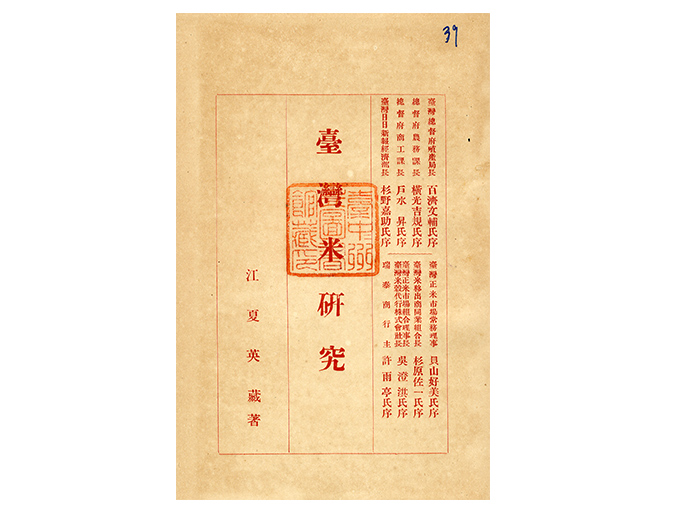 39
臺灣總督府殖產局長 百濟文輔氏序
總督府農務課長 橫光吉規氏序
總督府商工課長 戶水昇氏序
臺灣日日新報經濟部長 杉野嘉助氏序
臺灣正米市場常務理事 貝山好美氏序
臺灣米移出商同業組合長 杉原佐一氏序
臺灣正米市場組合理事長
臺灣米穀代行株式會社長 吳澄淇氏序
瑞泰商行主 許雨亭氏序
臺灣米研究
臺中州圖書館藏印
江夏英藏著